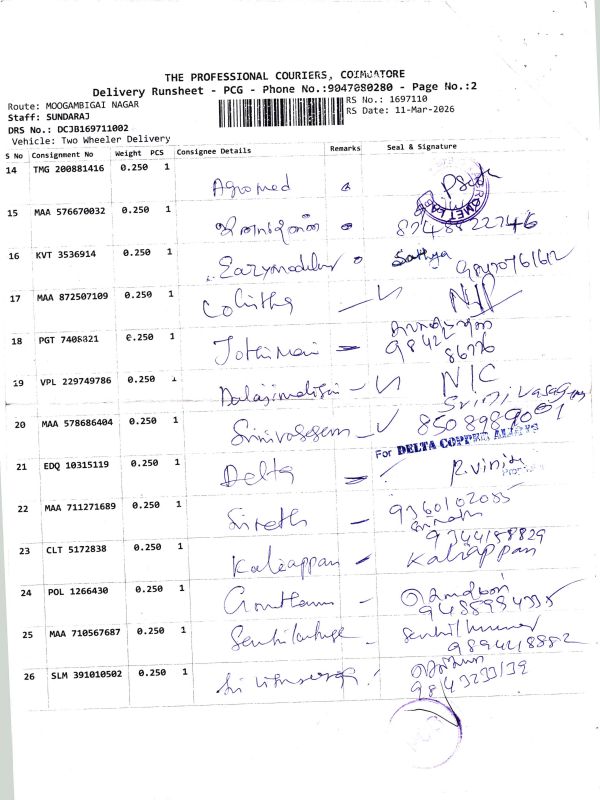 THE PROFESSIONAL COURIERS, COIMBATORE
Delivery Runsheet - PCG - Phone No.:9047080280 - Page No.:2
Route: MOOGAMBIGAI NAGAR
RS No.: 1697110
Staff: SUNDARAJ
RS Date: 11-Mar-2026
DRS No.: DCJB169711002
Vehicle: Two Wheeler Delivery
S No Consignment No Weight PCS Consignee Details Remarks Seal & Signature
14 TMG 200881416 0.250 1 Agromed
15 MAA 576670032 0.250 1 8748822746
16 KVT 3536914 0.250 1 Eazymodular Sathya
17 MAA 872507109 0.250 1
18 PGT 7408821 0.250 1 Jothimani
98422
86776
19 VPL 229749786 0.250 1 N/C
20 MAA 578686404 0.250 1 Srinivasagam Srinivasagam
8508989001
For DELTA COPPER ALLOYS
21 EDQ 10315119 0.250 1 Delta R.Vinis
22 MAA 711271689 0.250 1 9360102035
23 CLT 5172838 0.250 1 Kaliappan 9344188829
Kaliappan
24 POL 1266430 0.250 1 Gowtham
9488984335
25 MAA 710567687 0.250 1 Senthilkumar
9894418882
26 SLM 391010502 0.250 1
9843233139